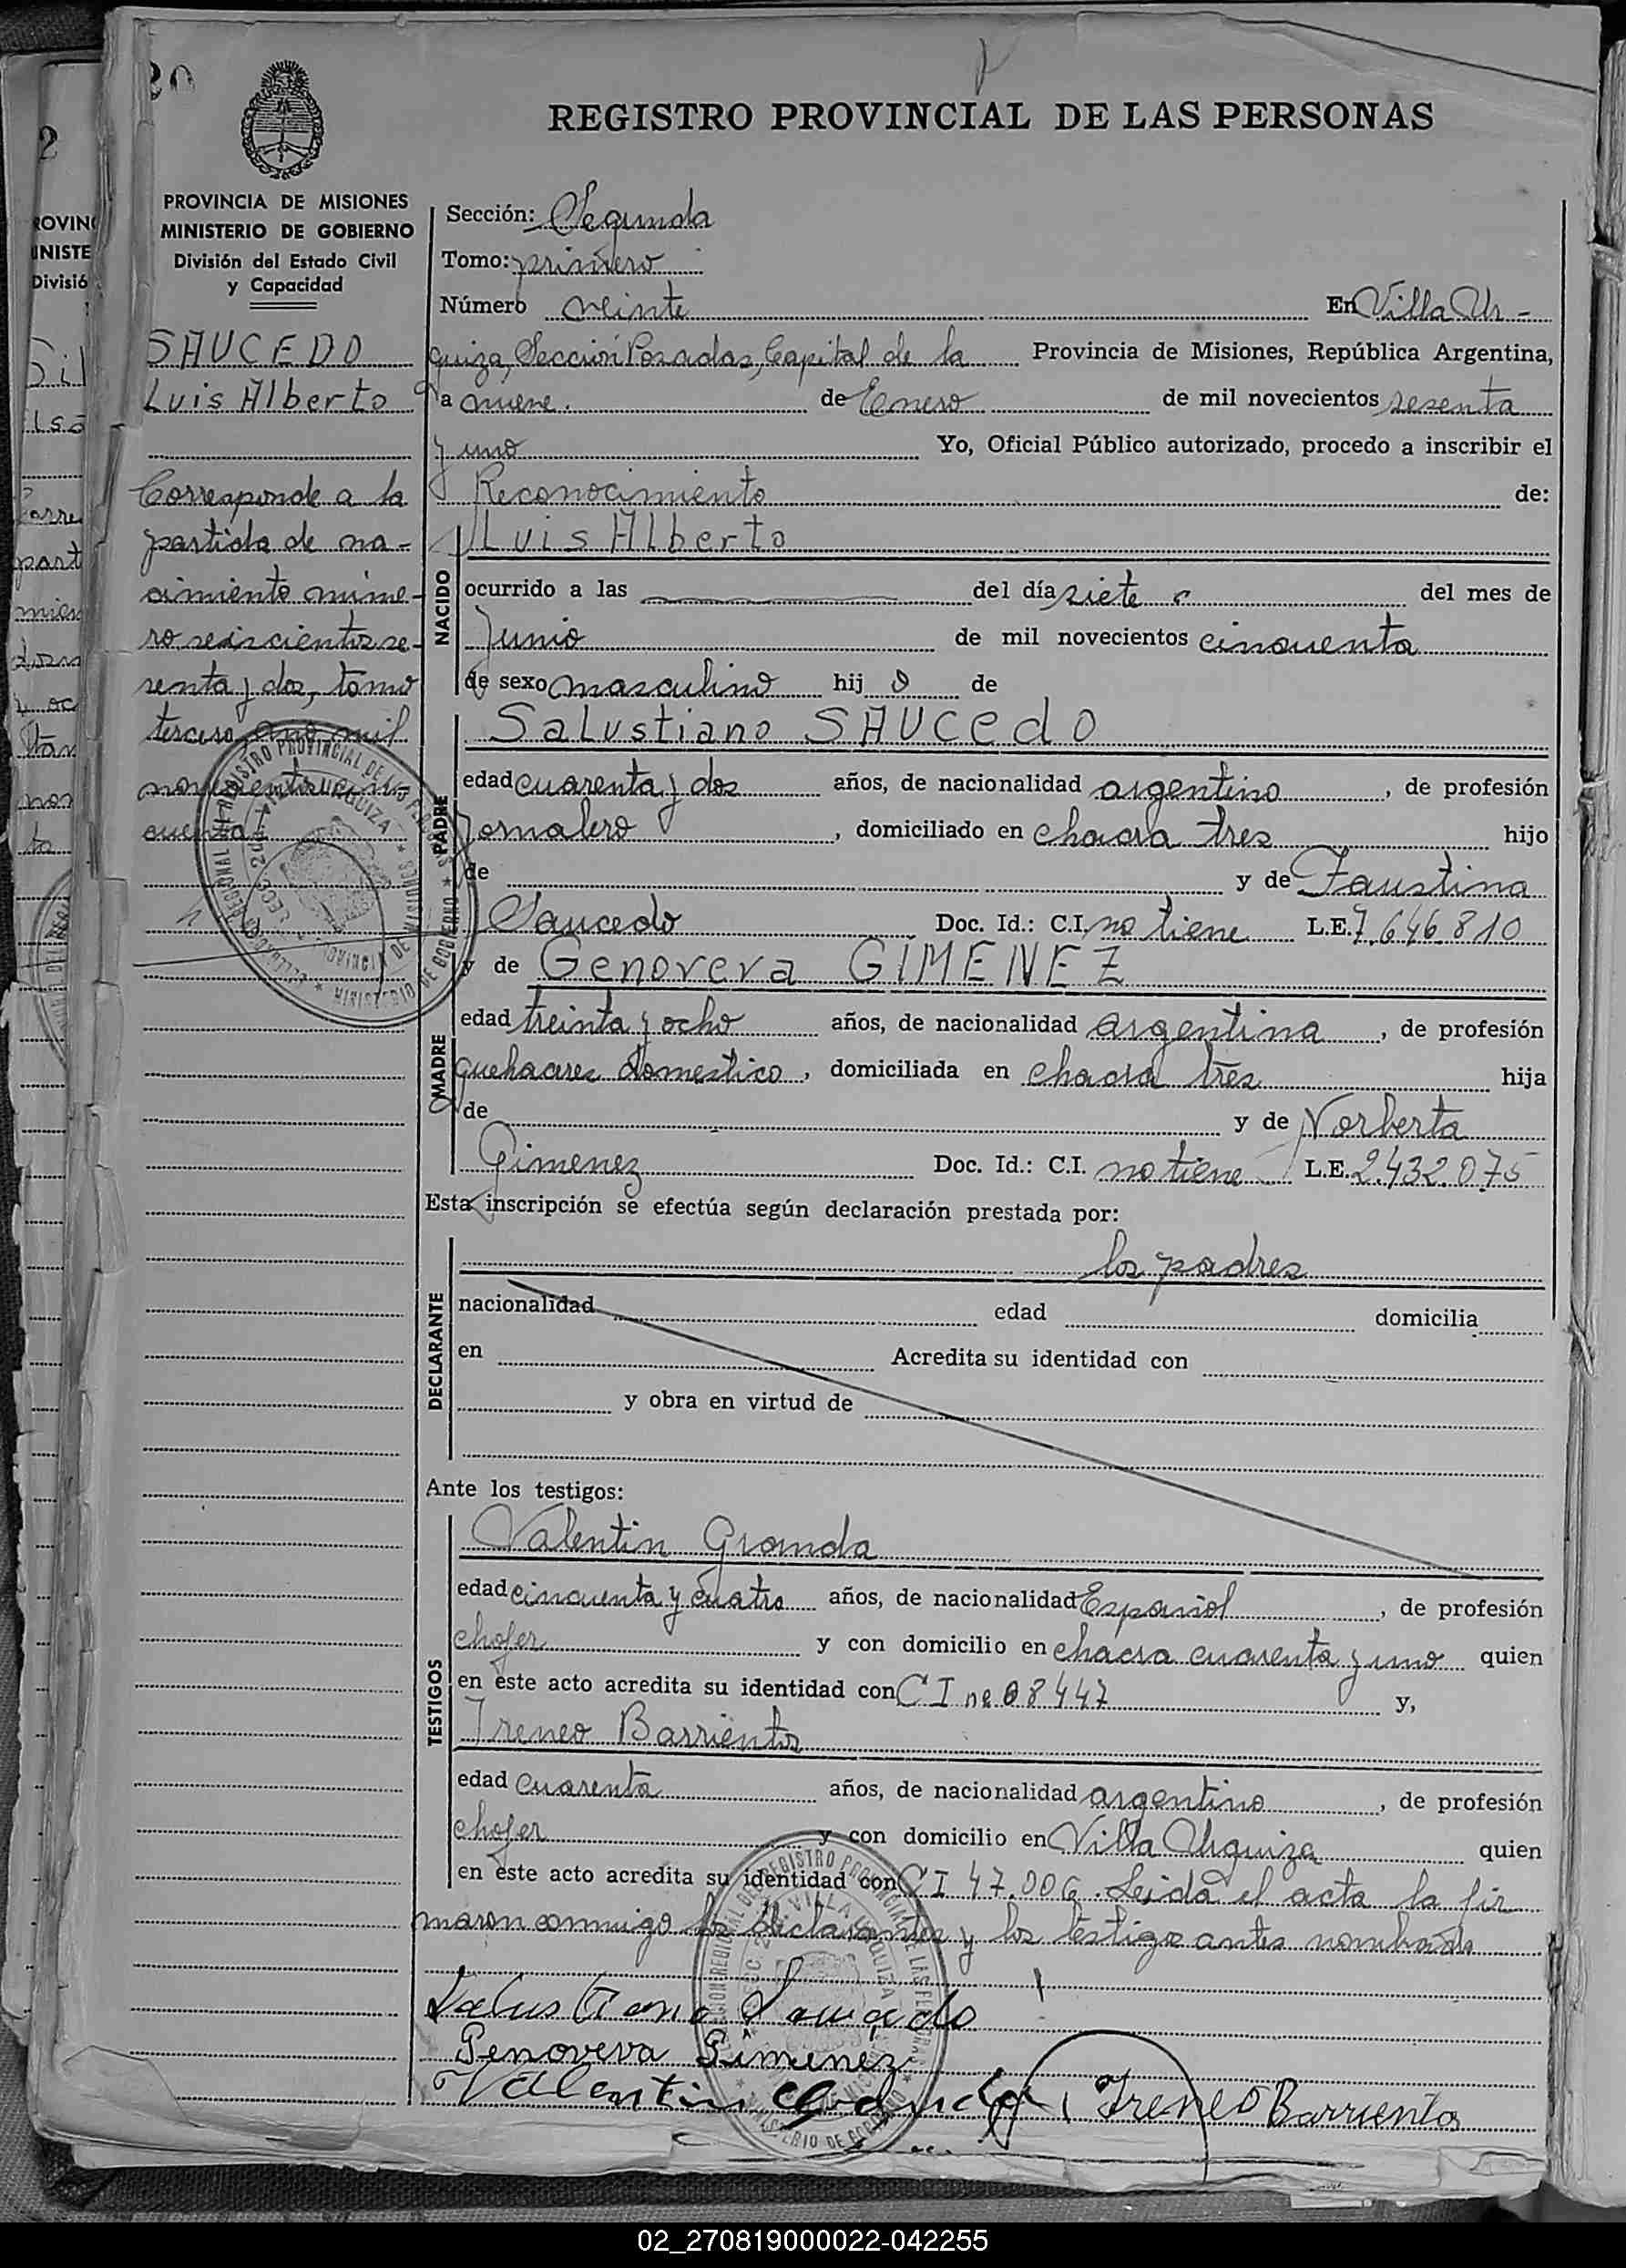 20
REGISTRO PROVINCIAL DE LAS PERSONAS
PROVINCIA DE MISIONES
MINISTERIO DE GOBIERNO
División del Estado Civil
y Capacidad
SAUCEDO
Luis Alberto
Corresponde a la
partida de na-
cimiento núme-
ro seiscientos se-
senta y dos, tomo
tercero, año mil
novecientos cin-
cuenta
Sección: Segunda
Tomo: primero
Número veinte En Villa Ur-
quiza, Sección Posadas, Capital de la Provincia de Misiones, República Argentina,
a nueve de Enero de mil novecientos sesenta
y uno Yo, Oficial Público autorizado, procedo a inscribir el
Reconocimiento de:
NACIDO
Luis Alberto
ocurrido a las del día siete del mes de
Junio de mil novecientos cincuenta
de sexo masculino hij o de
PADRE
Salustiano SAUCEdO
edad cuarenta y dos años, de nacionalidad argentino, de profesión
Jornalero, domiciliado en chacra tres hijo
de y de Faustina
Saucedo Doc. Id.: C.I. no tiene L.E. 7.646.810
MADRE
y de Genoveva GIMENEZ
edad treinta y ocho años, de nacionalidad argentina, de profesión
quehaceres domestico, domiciliada en chacra tres hija
de y de Norberta
Gimenez Doc. Id.: C.I. no tiene L.E. 2.432.075
Esta inscripción se efectúa según declaración prestada por:
DECLARANTE
los padres
nacionalidad edad domicilia
en Acredita su identidad con
y obra en virtud de
Ante los testigos:
TESTIGOS
Valentin Granda
edad cincuenta y cuatro años, de nacionalidad Español, de profesión
chofer y con domicilio en chacra cuarenta y uno quien
en este acto acredita su identidad con C I nº 08447 y,
Ireneo Barrientos
edad cuarenta años, de nacionalidad argentino, de profesión
chofer y con domicilio en Villa Urquiza quien
en este acto acredita su identidad con C I 47.006. Leida el acta la fir
maron conmigo los declarantes y los testigos antes nombrads
Salustiano Saucedo
Genoveva Gimenez
Valentin Granda Ireneo Barrientos
02_270819000022-042255